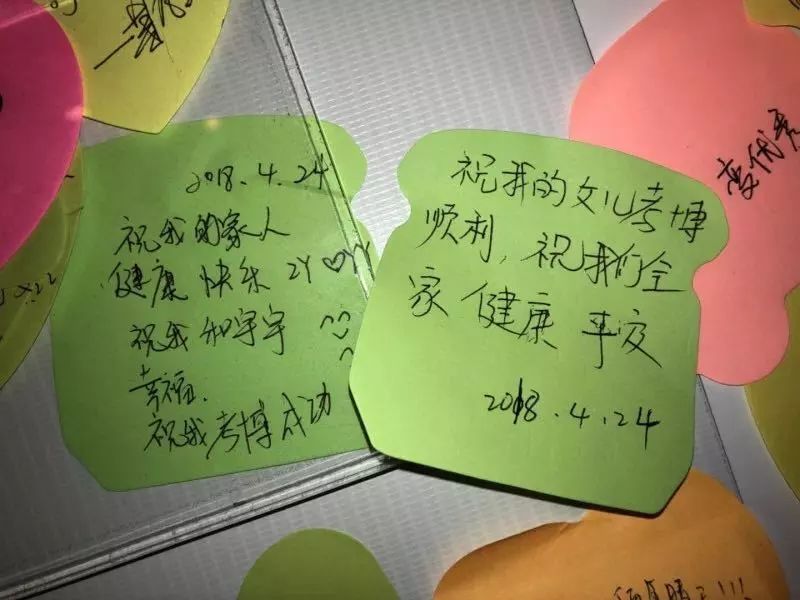 2018.4.24
祝我的家人
健康 快乐 ZY♡YY
祝我和宇宇
幸福.
祝我考博成功
祝我的女儿考博
顺利,祝我们全
家 健康 平安
2018.4.24
变优秀